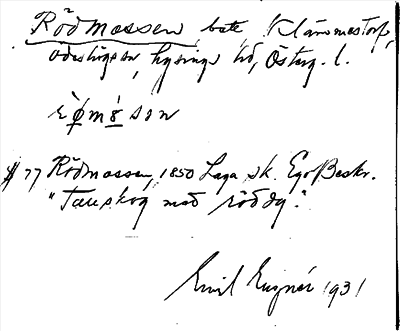 Rödmossen, bete, Klåromestorp,
Ödeshögs sn, Lysings hd, Österg. l.
rø̀mósən
§ 77 Rödmossen, 1850 Laga sk. Ego Beskr.
"Tallskog med röddy".
Emil Eugnér 1931